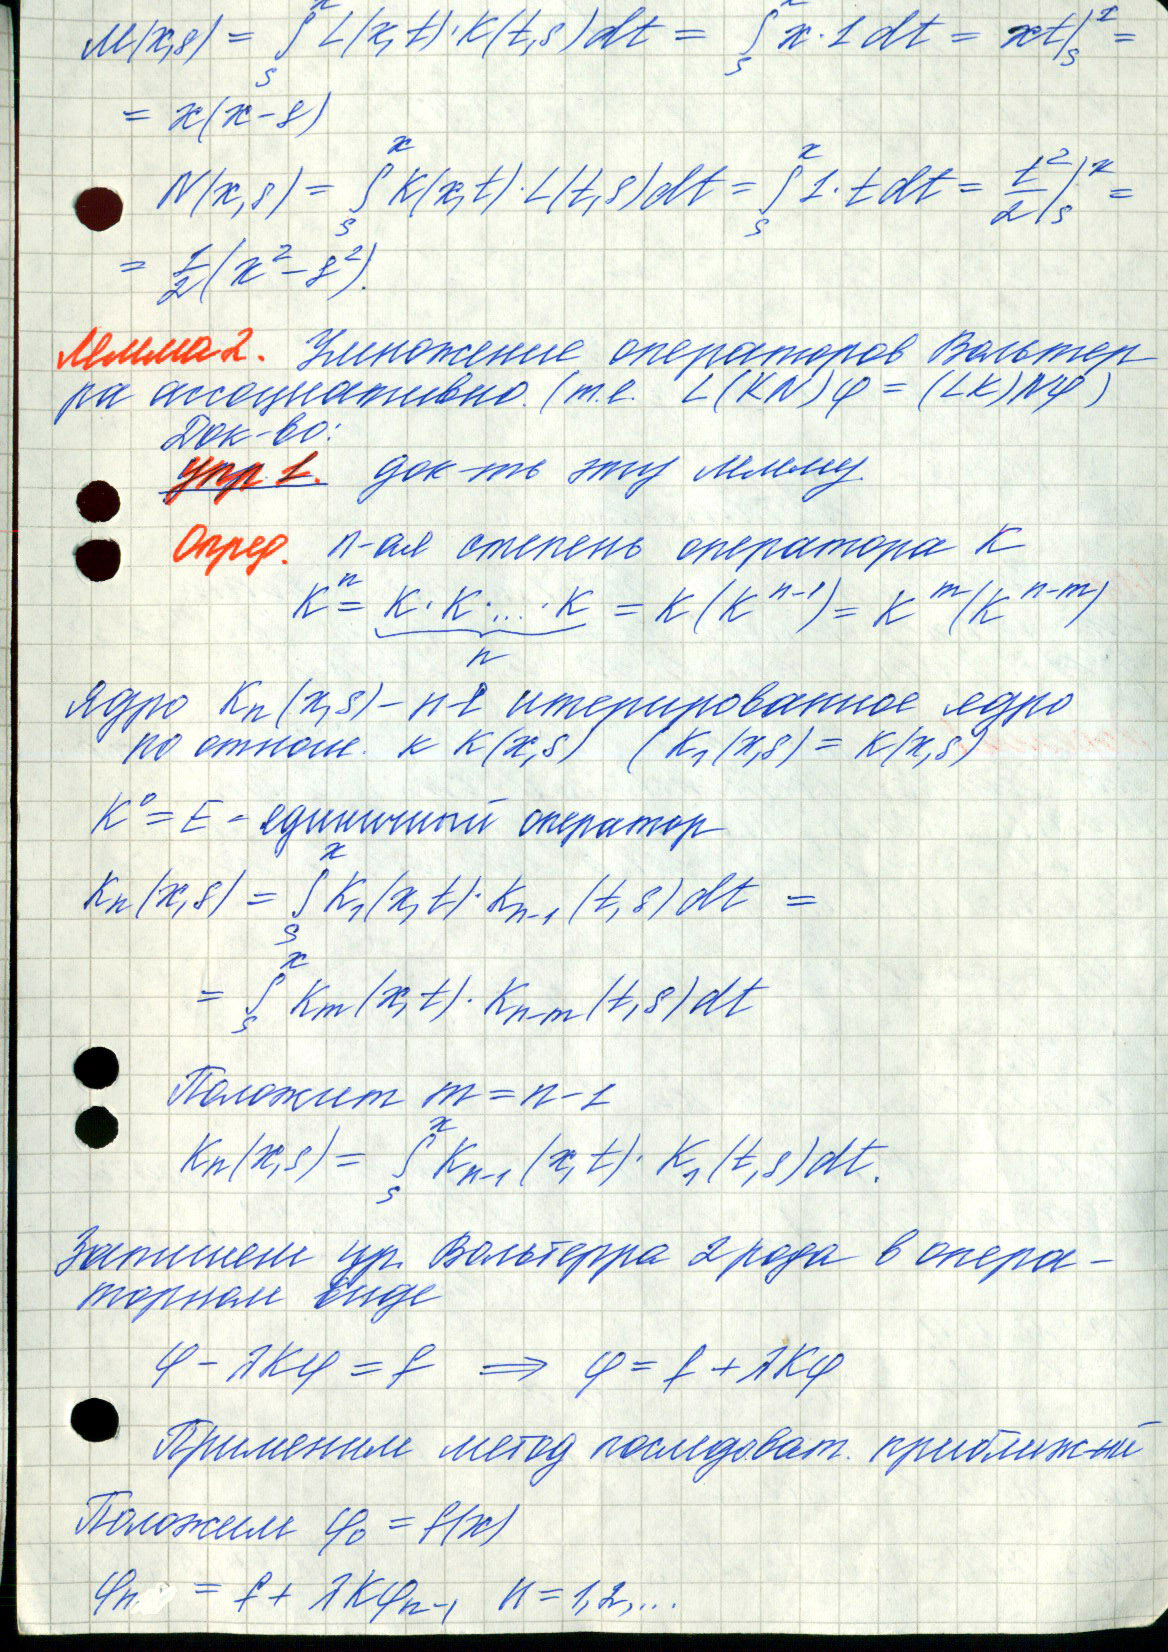 M(x,s) = ∫ₛˣ L(x,t)·K(t,s)dt = ∫ₛˣ x·1 dt = xt|ₛˣ =
= x(x-s)
N(x,s) = ∫ₛˣ K(x,t)·L(t,s)dt = ∫ₛˣ 1·t dt = t²/2|ₛˣ =
= 1/2(x²-s²).
Лемма 2. Умножение операторов Вольтер
ра ассоциативно. (т.е. L(KN)φ = (LK)Nφ)
Док-во:
Упр 1. док-ть эту лемму.
Опред. n-ая степень оператора K
Kⁿ = K·K·...·K = K(Kⁿ⁻¹) = Kᵐ(Kⁿ⁻ᵐ)
n
Ядро Kₙ(x,s) - n-е итерированное ядро
по отнош. к K(x,s) (K₁(x,s) = K(x,s)
K⁰ = E - единичный оператор
Kₙ(x,s) = ∫ₛˣ K₁(x,t)·Kₙ₋₁(t,s)dt =
= ∫ₛˣ Kₘ(x,t)·Kₙ₋ₘ(t,s)dt
Положит m = n-1
Kₙ(x,s) = ∫ₛˣ Kₙ₋₁(x,t)·K₁(t,s)dt.
Запишем ур. Вольтерра 2 рода в опера-
торном виде
φ - λKφ = f ⟹ φ = f + λKφ
Применим метод последоват. приближний
Положим φ₀ = f(x)
φₙ = f + λKφₙ₋₁ n = 1,2,...